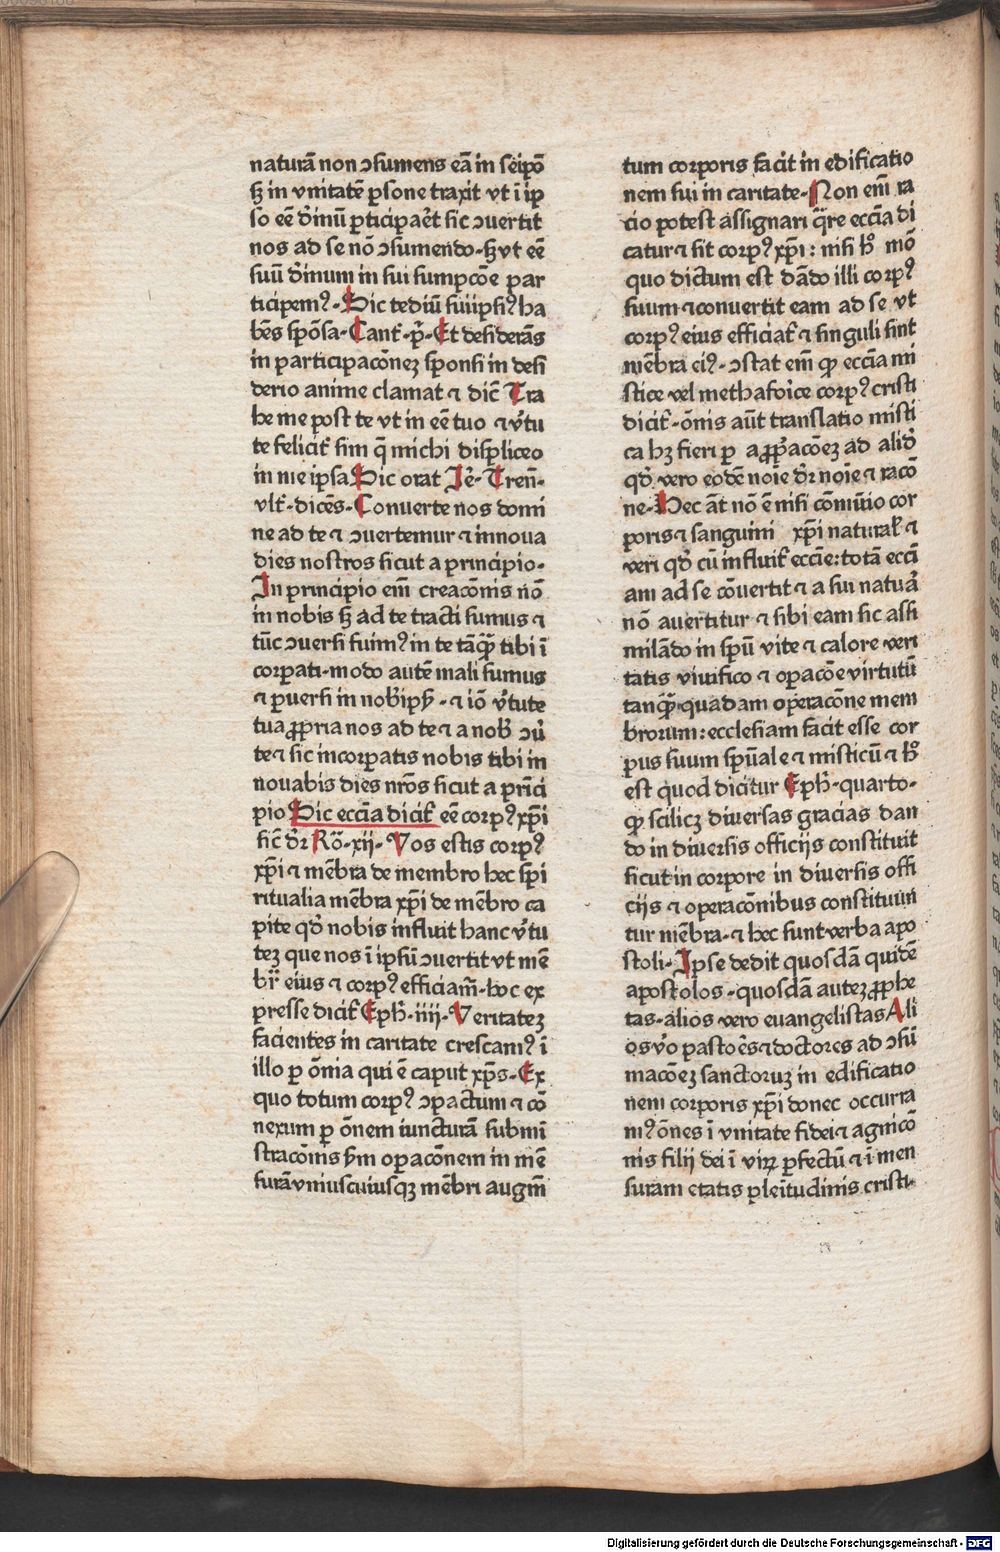 naturā non ↄsumens eā in seip̄o
sꝫ in vnitatē ꝑsone traxit vt ī ip
so eē diuinū ꝑticipaēt sic ↄuertit
nos ad se nō ↄsumendo · sꝫ vt eē
suū diuinum in sui sumpcōe par
ticipemꝰ · Sic tediū sui ipsiꝰ ha
bēs spōsa · Cant̄ · p̄ · Et desiderās
in participacōneꝫ sponsi in desi
derio anime clamat ⁊ dic̄ Tra
he me post te vt in eē tuo ⁊ v̄tu
te felicit̄ sim q̄ michi displiceo
in me ipsa Sic orat Je͛ · Tren̄ ·
vlt̄ · dicēs · Conuerte nos domi
ne ad te ⁊ ↄuertemur ⁊ innoua
dies nostros sicut a principio ·
In principio em̄ creacōnis nō
in nobis sꝫ ad te tracti sumus ⁊
tūc ↄuersi fuimꝰ in te tāꝙ̄ tibi ī
corꝑati · modo autē mali sumus
⁊ ꝑuersi in nob̄ ipsꝫ · ⁊ iō v̄tute
tua ꝓpria nos ad te ⁊ a nob̄ ↄū
te ⁊ sic incorꝑatis nobis tibi in
nouabis dies nr̄os sicut a prīci
pio Sic ecc̄ia dicit̄ eē corpꝰ xp̄i
sic̄ dr̄ Ro̅ · xij · Vos estis corpꝰ
xp̄i ⁊ mēbra de membro hec spi
ritualia mēbra xp̄i de mēbro ca
pite qd̄ nobis influit hanc v̄tu
teꝫ que nos ī ipsū ↄuertit vt mē
br̄ eius ⁊ corpꝰ efficiam̄ · hoc ex
presse dicit̄ Eph̄ · iiii · Veritateꝫ
facientes in caritate crescamꝰ ī
illo ꝑ ōnia qui ē caput xp̄s · Ex
quo totum corpꝰ ↄpactum ⁊ cō
nexum ꝑ ōnem iuncturā submī
stracōnis s̄m oꝑacōnem in mē
surā vniuscuiusqꝫ mēbri augm̄
tum corporis facit in edificatio
nem sui in caritate · Non em̄ ra
cio potest assignari q̄re ecc̄ia di
catur ⁊ sit corpꝰ xp̄i : nisi hͦ mō
quo dictum est dādo illi corpꝰ
suum ⁊ conuertit eam ad se vt
corpꝰ eius efficiat̄ ⁊ singuli sint
mēbra eiꝰ · ↄstat em̄ ꝙ ecc̄ia mi
stice vel methafoīce corpꝰ cristi
dicit̄ · ōnis aūt translatio misti
ca hꝫ fieri ꝑ aꝓp̄acōeꝫ ad aliqd̄
qd̄ vero eodē noīe dr̄ noīe ⁊ racō
ne · Hec āt nō ē nisi cōmūio cor
poris ⁊ sanguini xp̄i natural̄ ⁊
veri qd̄ cū influit̄ ecc̄ie : totā ecc̄i
am ad se cōuertit ⁊ a sui natura̅
nō auertitur ⁊ sibi eam sic assi
milādo in sp̄ū vite ⁊ calore veri
tatis viuifico ⁊ oꝑacōe virtutū
tanꝙ̄ · quadam operacōne mem
brorum : ecclesiam facit esse cor
pus suum sp̄uale ⁊ misticū ⁊ hͦ
est quod dicitur Eph̄ · quarto ·
ꝙ scilicꝫ diuersas gracias dan
do in diuersis officijs constituit
sicut in corpore in diuersis offi
cijs ⁊ operacōnibus constituun
tur mēbra · ⁊ hec sunt verba apo
stoli · Ipse dedit quosdā quidē
apostolos · quosdā auteꝫ ꝓphe
tas · alios vero euangelistas Ali
os v̄o pastoēs ⁊ doctores ad ↄsū
macōeꝫ sanctoruꝫ in edificatio
nem corporis xp̄i donec occurra
mꝰ ōnes ī vnitate fidei ⁊ agnicō
nis filij dei ī virꝝ ꝑfectū ⁊ ī men
suram etatis pleītudinis cristi ·
Digitalisierung gefördert durch die Deutsche Forschungsgemeinschaft - DFG